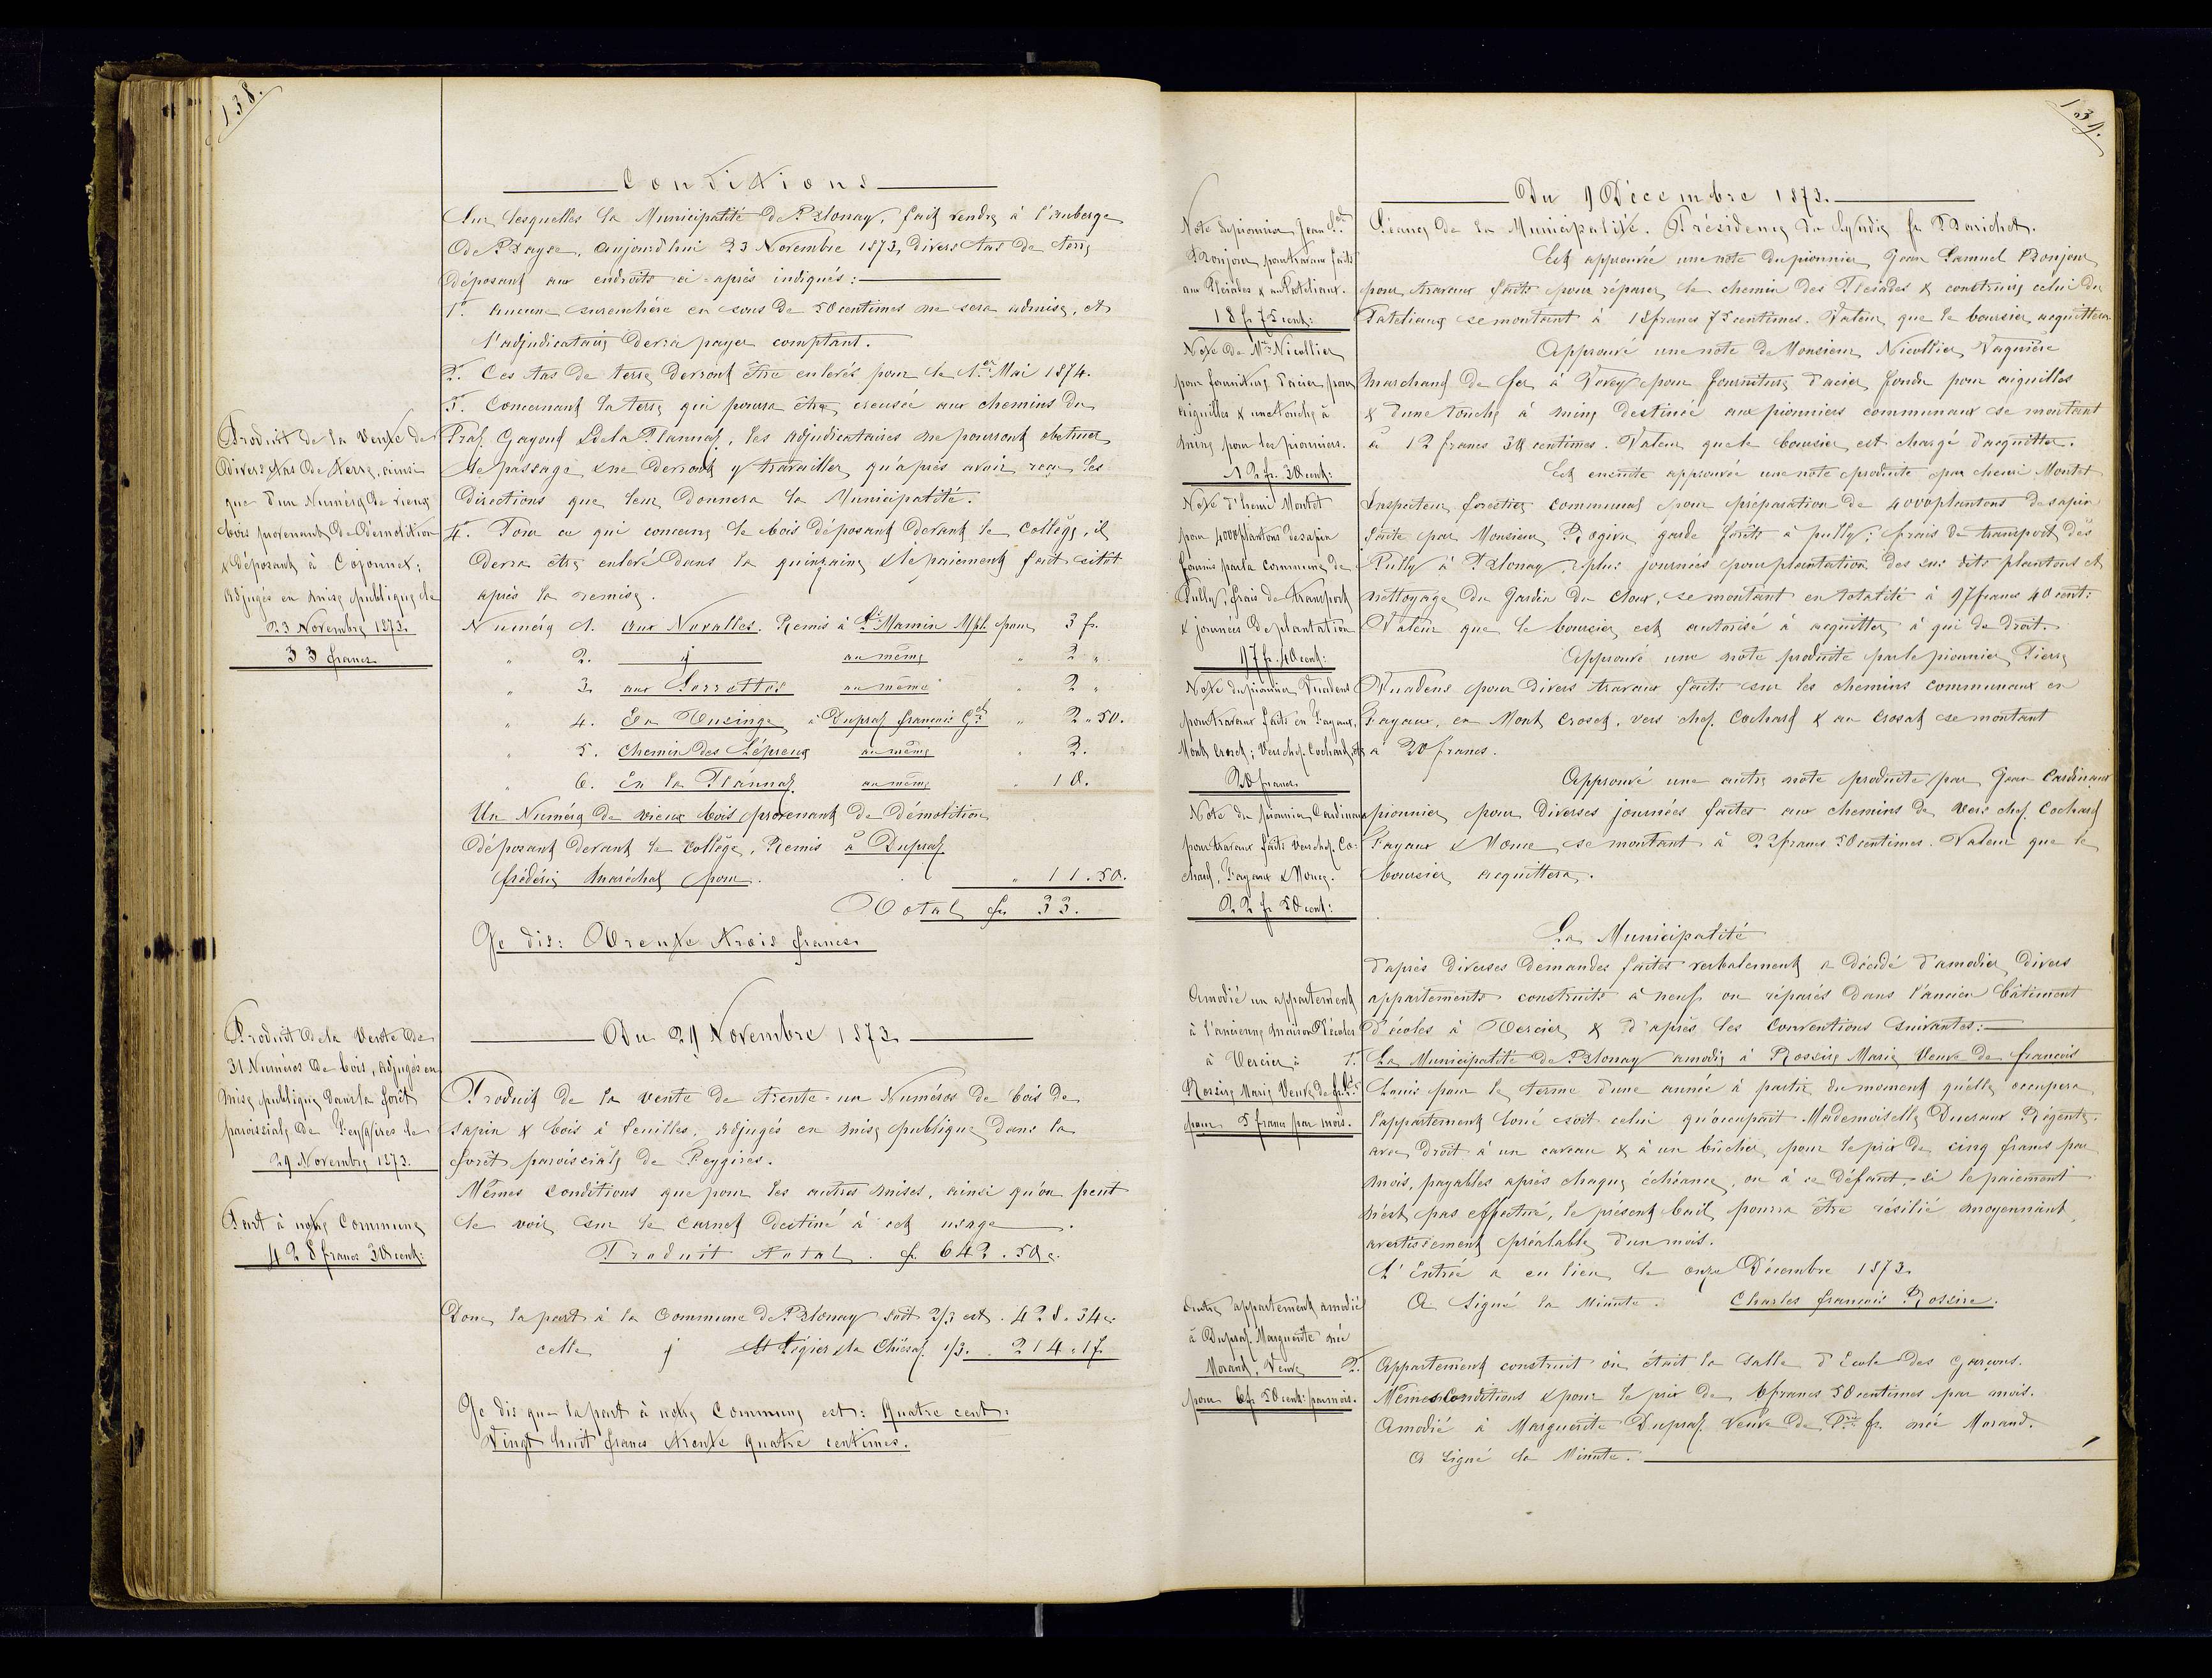 138.
Conditions
Sur lesquelles la Municipalité de Blonay, fait vendre à l'auberge
de Bayse, aujourd'hui 23 Novembre 1873, divers tas de terre
déposant aux endroits ci-après indiqués:
1° Aucune surenchère en sous de 50 centimes ne sera admise, et
l'adjudicataire devra payer comptant.
2° Ces tas de terre devront être enlevés pour le 1er Mai 1874.
3° Concernant la terre qui pourra être creusée aux chemins du
Praz, Gayoud & de la Plannaz, les adjudicataires ne pourront obstruer
le passage & ne devront y travailler, qu'après avoir reçu les
directions que leur donnera la Municipalité.
4° Pour ce qui concerne le bois déposant devant le Collège, il
devra être enlevé dans la quinzaine & le paiement fait sitôt
après la remise.
Produit de la Vente de
divers tas de terre, ainsi
que d'un Numéro de vieux
bois provenant de démolition
& déposant à Cojonnex;
adjugés en mise publique le
23 Novembre 1873.
33 francs
Numéro 1. aux Novalles. Remis à Ls Mamin Mpl pour 3 fr.
" 2. id au même " 2 "
" 3. aux Sorrettes au même " 2 "
" 4. En Ousinge à Dupraz françois Gel " 2 " 50.
" 5. Chemin des Lépreux au même " 2.
" 6. En la Plannaz au même " 10.
Un Numéro de vieux bois provenant de démolition
déposant devant le Collège, Remis à Dupraz
frédéric maréchal pour. " 11.50.
Total fr 33.
Je dis: Trente trois francs
Du 29 Novembre 1873
Produit de la Vente de
31 Numéros de bois, adjugés en
mise publique dans la forêt
paroissiale de Feygires le
29 Novembre 1873.
Part à notre Commune
428 francs 34 cent:
Produit de la vente de trente-un Numéros de bois de
sapin & bois à feuilles, adjugés en mise publique dans la
forêt paroissiale de Feygires.
Mêmes conditions que pour les autres mises, ainsi qu'on peut
le voir sur le carnet destiné à cet usage.
Produit total. fr. 642.50 c.
Donc la part à la Commune de Blonay soit 2/3 est. 428.34 c.
celle id St Légier & la Chiésaz 1/3. 214.17.
Je dis que la part à notre Commune est: Quatre cent:
Vingt huit francs trente quatre centimes.
139.
Du 9 Décembre 1873.
Séance de la Municipalité. Présidence du Syndic fr Bonjchet.
Note du pionnier Jean Sel
Bonjour, pour travaux faits
aux Pleiades & au Pateliaux.
18 fr 75 cent:
Est approuvée une note du pionnier Jean Samuel Bonjour
pour travaux faits pour réparer le chemin des Pleiades & construire celui du
Pateliaux se montant à 18 francs 75 centimes. Valeur que le boursier acquittera
Note de Mr Nicollier
pour fourniture d'acier pour
aiguilles & une touche à
mine pour les pionniers.
12 fr. 30 cent:
Approuvé une note de Monsieur Nicollier Vaguière
marchand de fer à Vevey pour fourniture d'acier fondu pour aiguilles
& d'une touche à mine destinée aux pionniers communaux se montant
à 12 francs 30 centimes. Valeur que le boursier est chargé d'acquitter.
Note d'henri Montet
pour 4000 plantons de sapin
fournis par la commune de
Pully, frais de transport
& journées de plantation
97 fr. 40 cent:
Est ensuite approuvée une note produite par henri Montet
Inspecteur forestier communal pour préparation de 4000 plantons de sapin
faite par Monsieur Rogivue garde forêts à pully; frais de transport dès
Pully à Blonay, plus journées pour plantation des sus dits plantons et
nettoyage du Jardin du cloux, se montant en totalité à 97 francs 40 cent:
Valeur que le boursier est autorisé à acquitter à qui de droit.
Note du pionnier Vuadens
pour travaux faits en Fayaux,
Mont Croset; Vers chez Cochard, etc
20 francs
Approuvé une note produite par le pionnier Pierre
Vuadens pour divers travaux faits sur les chemins communaux en
Fayaux, en Mont Croset, vers chez Cochard & au Crosat se montant
à 20 francs.
Note du pionnier Cardinaux
pour travaux faits Vers chez Co-
chard, Fayaux & Monce.
22 fr 50 cent:
Approuvé une autre note produite par Jean Cardinaux
pionnier pour diverses journées faites aux chemins de Vers chez Cochard
Fayaux & Monce, se montant à 22 francs 50 centimes. Valeur que le
boursier acquittera.
La Municipalité
d'après diverses demandes faites verbalement a décidé d'amodier divers
appartements construits à neuf ou réparés dans l'ancien bâtiment
d'écoles à Tercier & d'après les conventions suivantes:
Amodié un appartement
à l'ancienne maison d'écoles
à Tercier à
Rossire Marie Veuve de fs Ls
pour 5 francs par mois.
1° La Municipalité de Blonay amodie à Rossire Marie Veuve de françois
Louis pour le terme d'une année à partir du moment qu'elle occupera
l'appartement loué soit celui qu'occupait Mademoiselle Ducraux Régente.
avec droit à un caveau & à un bûcher, pour le prix de cinq francs par
mois, payables après chaque échéance, ou à ce défaut si le paiement
n'est pas effectué, le présent bail pourra être résilié moyennant
avertissement préalable d'un mois.
L'Entrée a eu lieu le onze Décembre 1873.
A signé la Minute. Charles françois Rossire.
Autre appartement amodié
à Dupraz Marguerite née
Morand, Veuve
pour 6 fr 50 cent: par mois.
2° Appartement construit où était la salle d'Ecole des garçons.
Mêmes conditions & pour le prix de 6 francs 50 centimes par mois.
Amodié à Marguerite Dupraz Veuve de Pre fr. née Morand.
A signé la Minute.